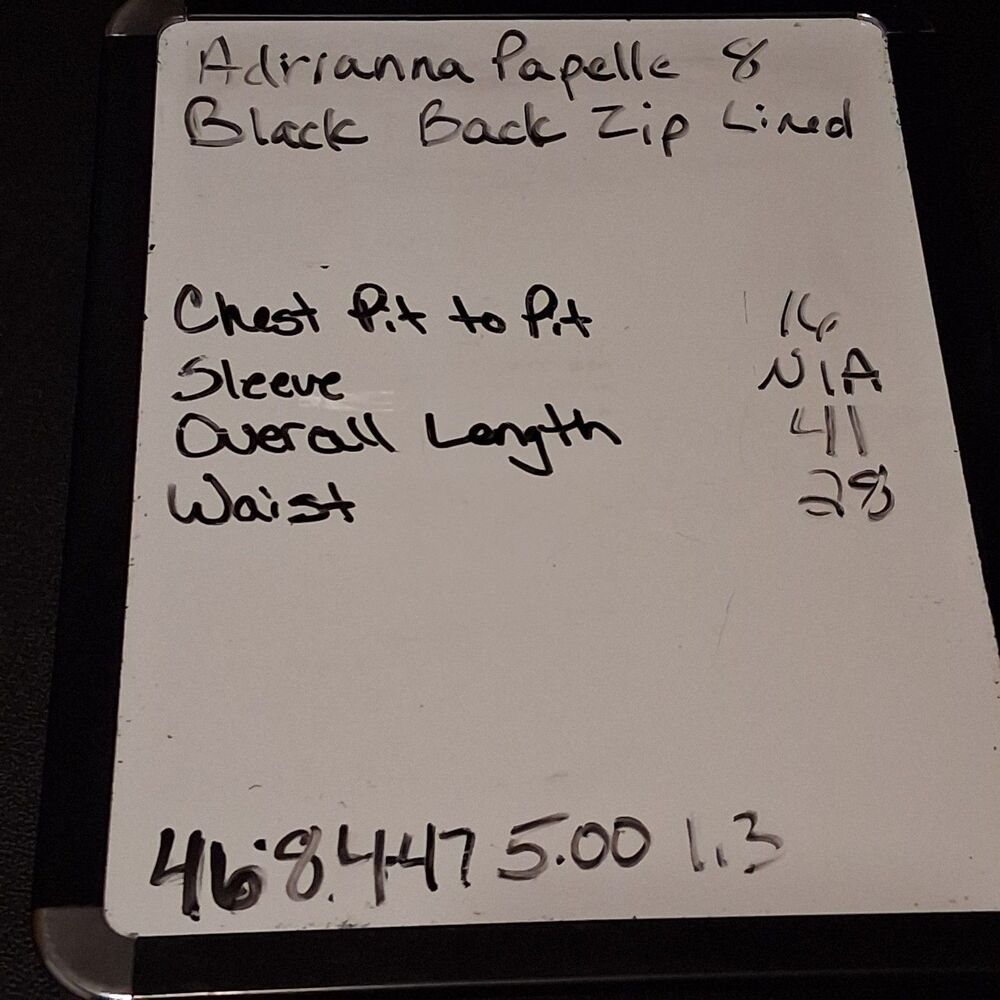 Adrianna Papelle 8
Black Back Zip Lined
Chest Pit to Pit 16
Sleeve N/A
Overall Length 41
Waist 28
468.447 5.00 1.3